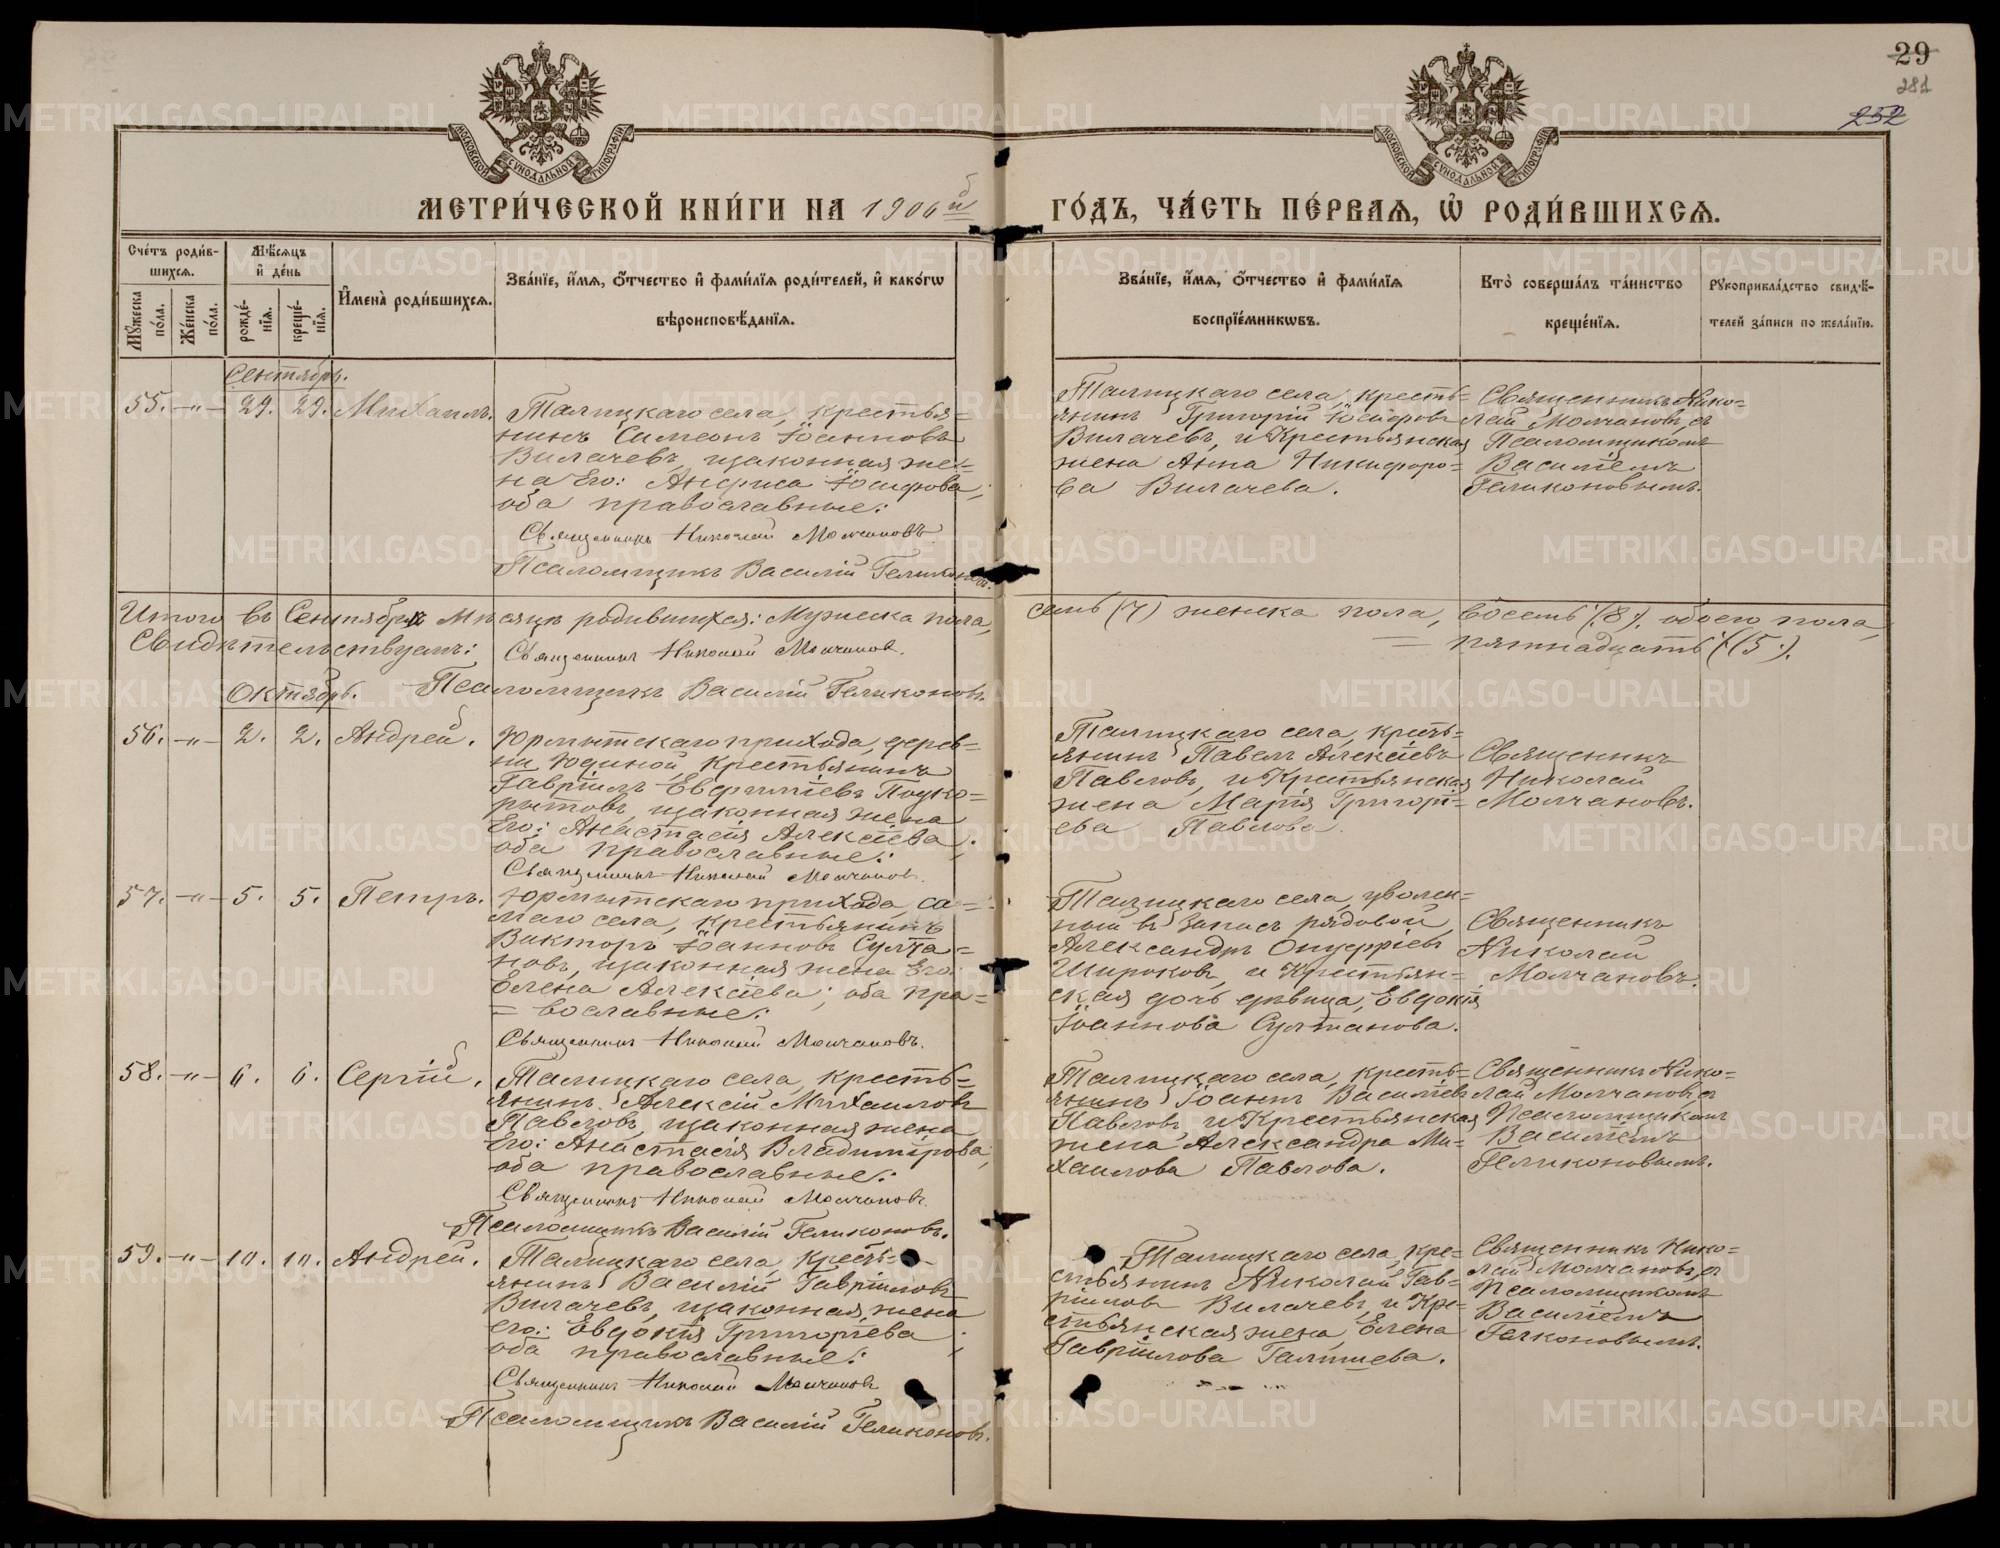 29
281
252
МОСКОВСКОЙ СУНОДАЛЬНОЙ ТИПОГРАФІИ
МОСКОВСКОЙ СУНОДАЛЬНОЙ ТИПОГРАФІИ
МЕТРИ́ЧЕСКОЙ КНИ́ГИ НА 1906й ГО́ДЪ, ЧА́СТЬ ПЕ́РВАЯ, Ѡ҆ РОДИ́ВШИХСЯ.
Сче́тъ роди́в-
шихся.
Мѣ́сяцъ
и҆ де́нь
Мꙋ́жеска
по́ла.
Же́нска
по́ла.
рожде́-
нїя.
креще́-
нїя.
И҆мена̀ роди́вшихся.
Зва́нїе, и҆́мя, ѻ҆́тчество и҆ фами́лїя роди́телей, и҆ како́гѡ
вѣроисповѣ́данїя.
Зва́нїе, и҆́мя, ѻ҆́тчество и҆ фами́лїя
воспрїе́мникѡвъ.
Кто̀ соверша́лъ та́инство
креще́нїя.
Рꙋкоприкла́дство свидѣ́-
телей за́писи по жела́нїю.
Сентябрь.
55. -„- 29. 29. Михаилъ.
Талицкаго села, крестья=
нинъ Симеонъ Іоанновъ
Вилачевъ, изаконная же=
на Его: Анфиса Іосифова;
оба православные:
Священникъ Николай Молчановъ
Псаломщикъ Василій Геликоновъ.
Талицкаго села, кресть=
янинъ Григорій
Вилачевъ, и Крестьянская
жена Анна Никифоро=
ва Вилачева.
Священникъ Нико=
лай Молчановъ, съ
Псаломщикомъ
Василіемъ
Геликоновымъ.
Итого въ Сентябрѣ Мѣсяцѣ родившихся: Мужеска пола, семь (7) женска пола, восемь (8). обоего пола,
= пятнадцать (15).
Свидѣтельствуемъ: Священникъ Николай Молчановъ.
Псаломщикъ Василій Геликоновъ.
Октябрь.
56. -„- 2. 2. Андрей.
Юрмытскаго прихода, дерев=
ни Юдиной, Крестьянинъ
Гавріилъ Евфиміевъ Подко=
рытовъ, изаконная жена
Его: Анастасія Алексіева;
оба православные:
Священникъ Николай Молчановъ.
Талицкаго села, кресть=
янинъ Павелъ Алексіевъ
Павловъ, и Крестьянская
жена Марія Григорі=
ева Павлова.
Священникъ
Николай
Молчановъ.
57. -„- 5. 5. Петръ.
Юрмытскаго прихода, са=
маго села, крестьянинъ
Викторъ Іоанновъ Султа=
новъ, изаконная жена Его:
Елена Алексіева; оба пра=
= вославные:
Священникъ Николай Молчановъ.
Талицкаго села, уволен=
ный въ Запасъ рядовой
Александръ Онуфріевъ
Широковъ, и Крестьян=
ская дочь дѣвица, Евдокія
Іоаннова Султанова.
Священникъ
Николай
Молчановъ.
58. -„- 6. 6. Сергій.
Талицкаго села, кресть=
янинъ Алексій Михаиловъ
Павловъ, изаконная жена
Его: Анастасія Владимірова;
оба православные:
Священникъ Николай Молчановъ.
Псаломщикъ Василій Геликоновъ.
Талицкаго села, кресть=
янинъ Іоаннъ Василіевъ
Павловъ, и Крестьянская
жена Александра Ми=
хаилова Павлова.
Священникъ Нико=
лай Молчановъ, съ
Псаломщикомъ
Василіемъ
Геликоновымъ.
59. -„- 10. 10. Андрей.
Талицкаго села, Кресть=
янинъ Василій Гавріиловъ
Вилачевъ, изаконная жена
его: Евдокія Григоріева;
оба православные:
Священникъ Николай Молчановъ
Псаломщикъ Василій Геликоновъ.
Талицкаго села, кре=
стьянинъ Николай Гав=
ріиловъ Вилачевъ, и Кре=
стьянская жена, Елена
Гавріилова Галишева.
Священникъ Нико=
лай Молчановъ, съ
Псаломщикомъ
Василіемъ
Геликоновымъ.
METRIKI.GASO-URAL.RU